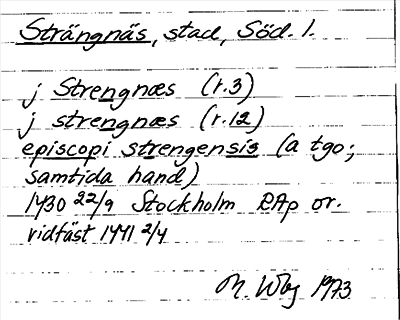 Strängnäs, stad, Söd. l.
j Strengnæs (r. 3)
j strengnæs (r. 12)
episcopi strengensis (a tgo;
samtida hand)
1430 22/9 Stockholm RAp or.
vidfäst 1441 2/4
M. Wbg 1973